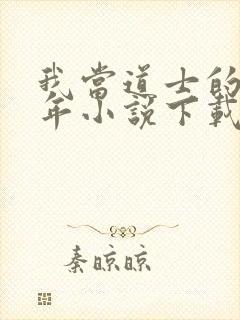 我當道士的
年小說下載
秦晾晾